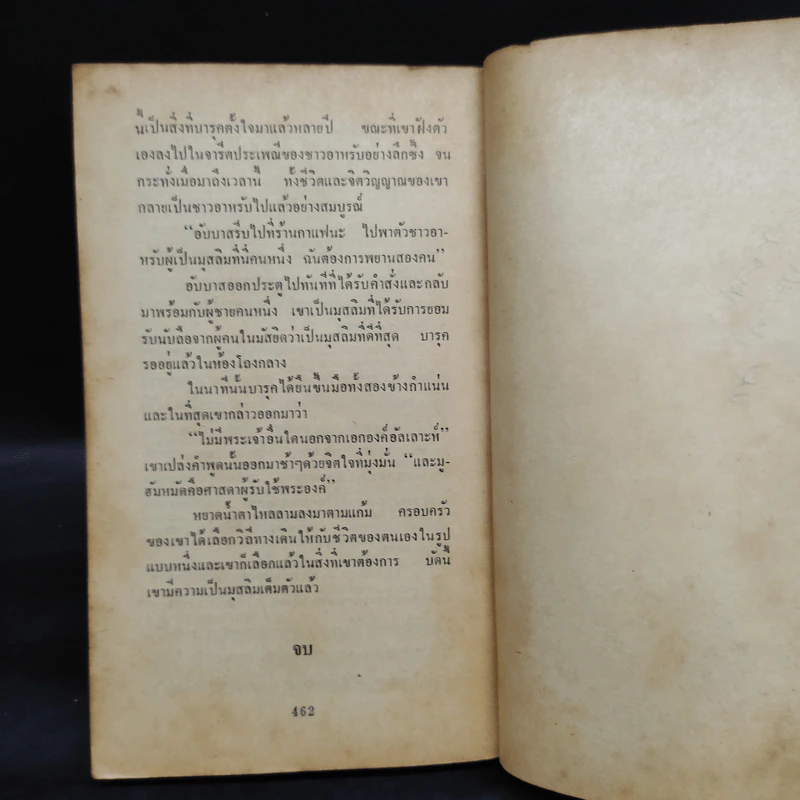 นี้เป็นสิ่งที่บารุคตั้งใจมาแล้วหลายปี ขณะที่เขาฝังตัว
เองลงไปในจารีตประเพณีของชาวอาหรับอย่างลึกซึ้ง จน
กระทั่งเมื่อมาถึงเวลานี้ ทั้งชีวิตและจิตวิญญาณของเขา
กลายเป็นชาวอาหรับไปแล้วอย่างสมบูรณ์
“อับบาสรีบไปที่ร้านกาแฟนะ ไปพาตัวชาวอา-
หรับผู้เป็นมุสลิมที่นี่คนหนึ่ง ฉันต้องการพยานสองคน”
อับบาสออกประตูไปทันทีที่ได้รับคำสั่งและกลับ
มาพร้อมกับผู้ชายคนหนึ่ง เขาเป็นมุสลิมที่ได้รับการยอม
รับนับถือจากผู้คนในมัสยิดว่าเป็นมุสลิมที่ดีที่สุด บารุค
รออยู่แล้วในห้องโถงกลาง
ในนาทีนั้นบารุคได้ยืนขึ้นมือทั้งสองข้างกำแน่น
และในที่สุดเขากล่าวออกมาว่า
“ไม่มีพระเจ้าอื่นใดนอกจากเอกองค์อัลเลาะห์”
เขาเปล่งคำพูดนั้นออกมาช้าๆด้วยจิตใจที่มุ่งมั่น “และมู-
ฮัมหมัดคือศาสดาผู้รับใช้พระองค์”
หยาดน้ำตาไหลลามลงมาตามแก้ม ครอบครัว
ของเขาได้เลือกวิถีทางเดินให้กับชีวิตของตนเองในรูป
แบบหนึ่งและเขาก็เลือกแล้วในสิ่งที่เขาต้องการ บัดนี้
เขามีความเป็นมุสลิมเต็มตัวแล้ว
จบ
462